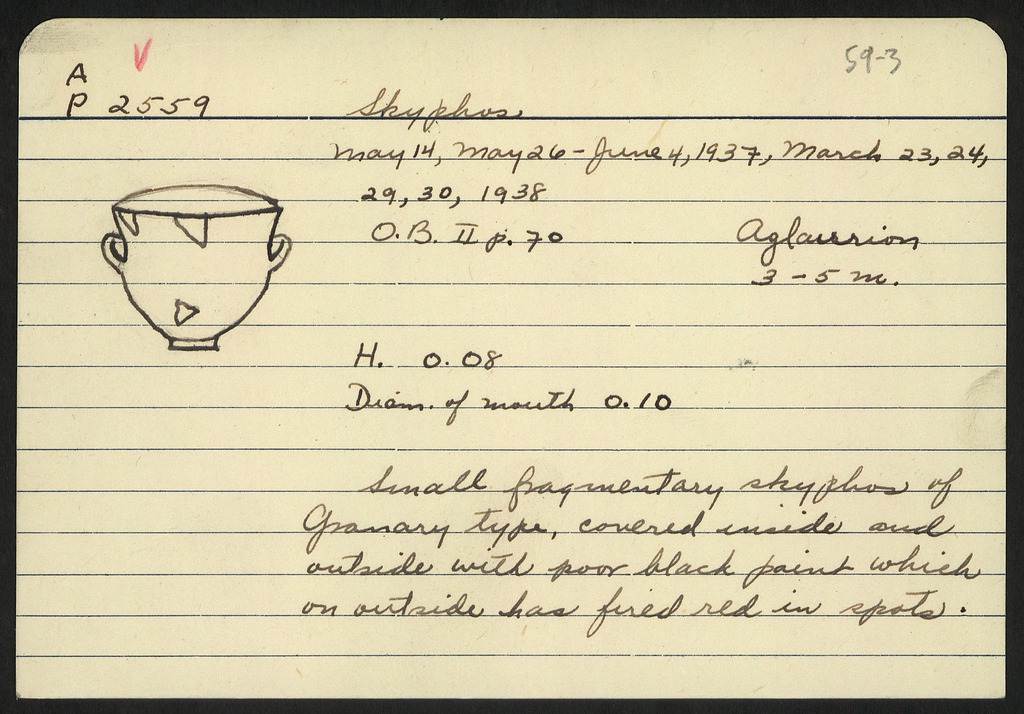 A
P 2559
59-3
Skyphos
May 14, May 26 - June 4, 1937, March 23, 24,
29, 30, 1938
O.B. II p. 70
Aglaurion
3 - 5 m.
H. 0.08
Diam. of mouth 0.10
Small fragmentary skyphos of
Granary type, covered inside and
outside with poor black paint which
on outside has fired red in spots.